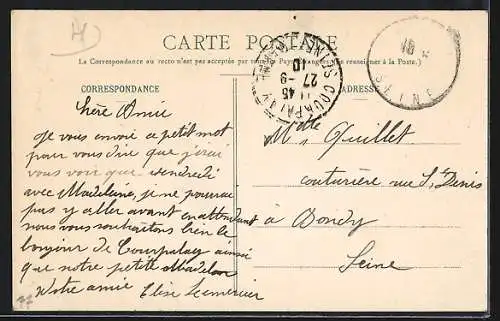 CARTE POSTALE
La Correspondance au recto n'est pas acceptée par tous les Pays Étrangers (Se renseigner à la Poste.)
CORRESPONDANCE
ADRESSE
COURPALAY
11 45
27 -9
10
Chère Amie
Je vous envoie ce petit mot
pour vous dire que j'irai
vous voir que vendredi
avec Madeleine, je ne pourrai
pas y aller avant en attendant
nous vous souhaitons bien le
bonjour de Courpalay ainsi
que notre petite Madelon
Votre amie Elise Lemercier
Mlle Quillet
couturière rue St Denis
à Bondy
Seine